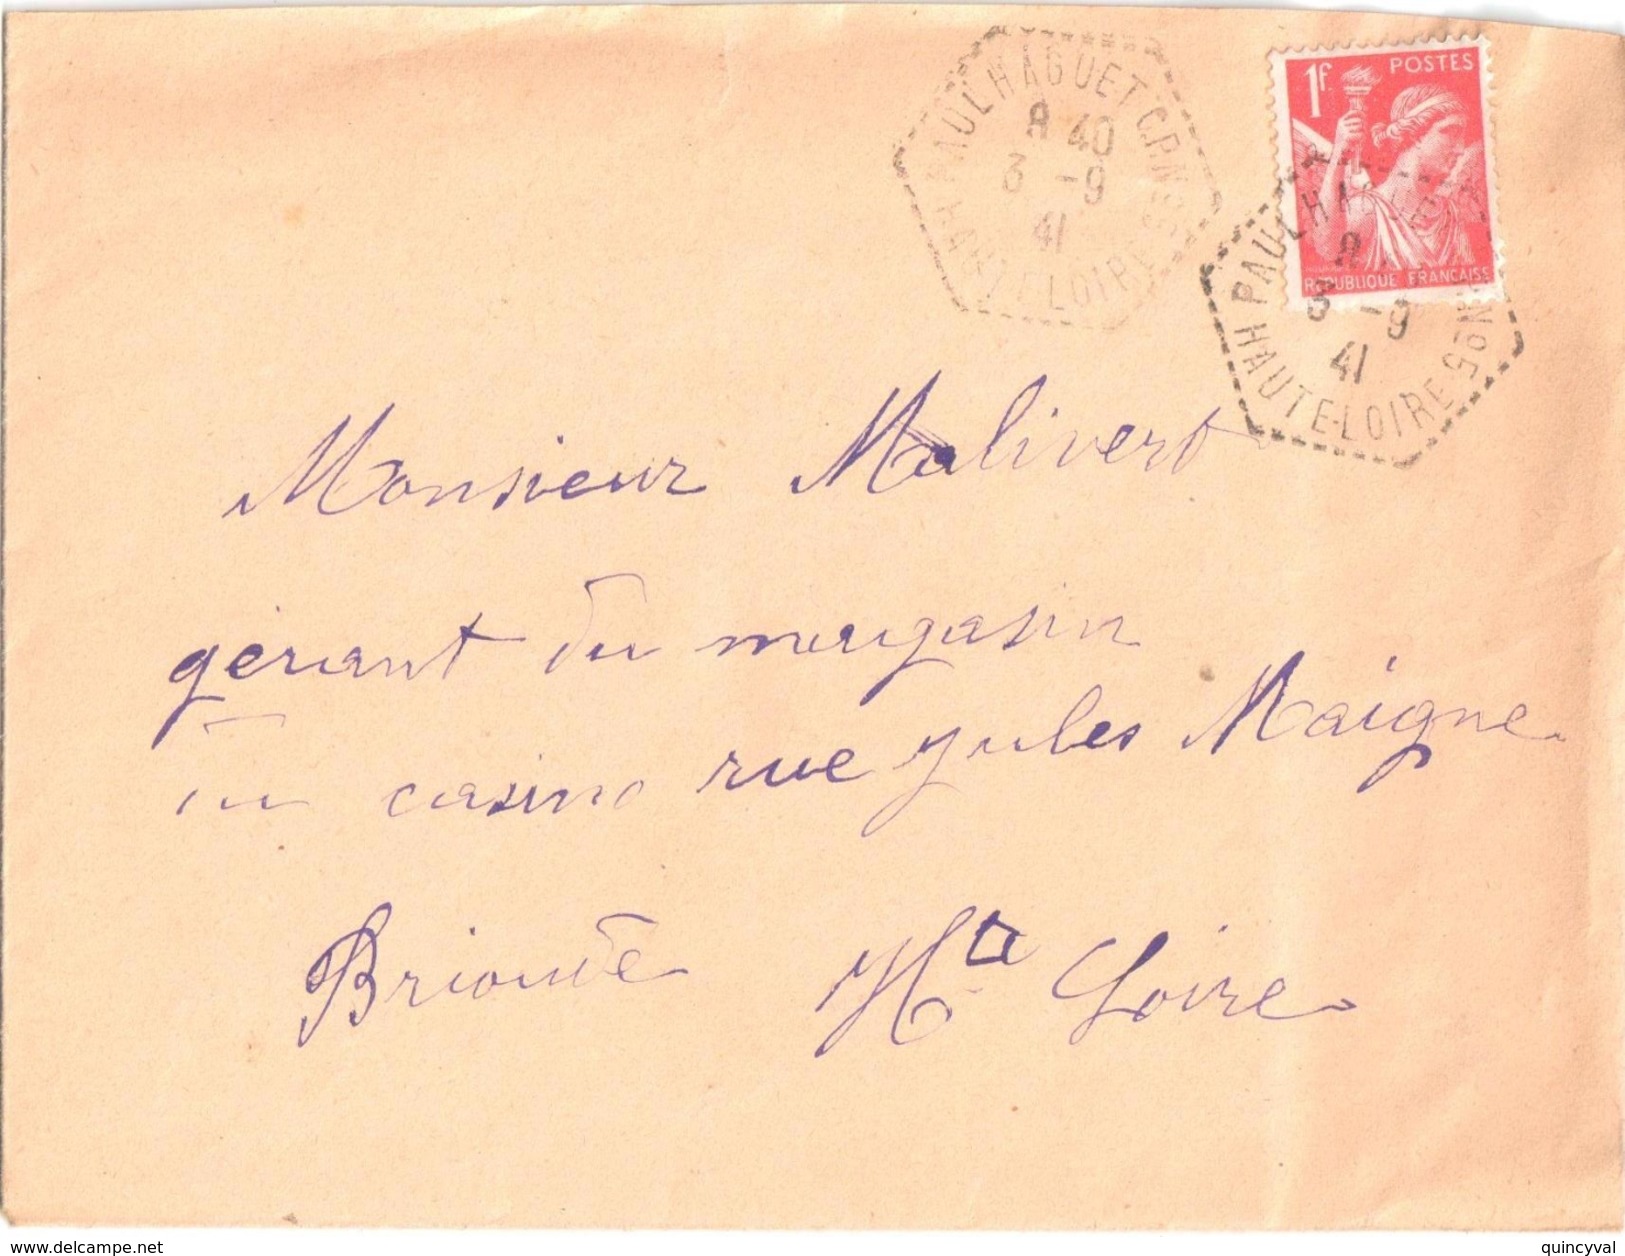 PAULHAGUET C.P.N°5
8 40
3 -9
41
HAUTE-LOIRE
1F POSTES
REPUBLIQUE FRANCAISE
PAULHAGUET C.P.N°5
8
3 -9
41
HAUTE-LOIRE
Monsieur Malivert
gérant du magasin
du casino rue Jules Maigne
Brioude Hte Loire
www.delcampe.net
quincyval